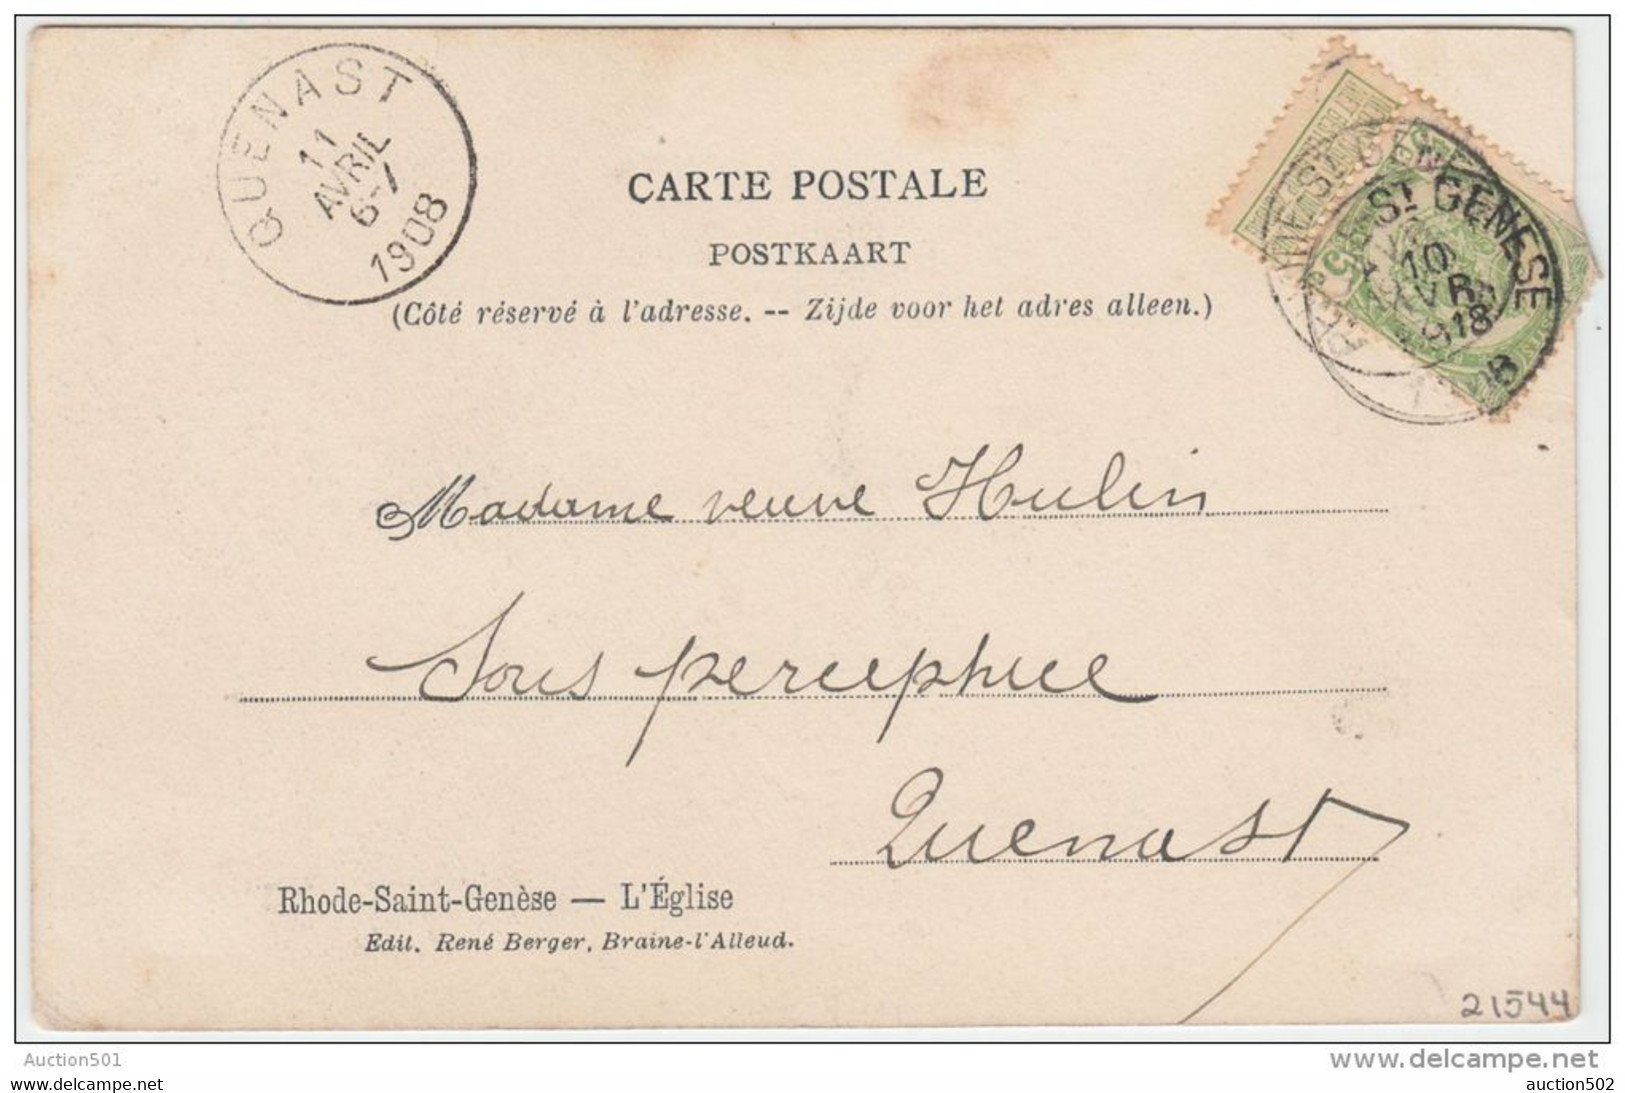 QUENAST
11
AVRIL
6-7
1908
CARTE POSTALE
POSTKAART
(Côté réservé à l'adresse. -- Zijde voor het adres alleen.)
St GENESE
10
AVR
18
Madame veuve Hulin
Sous perceptrice
Quenast
Rhode-Saint-Genèse — L'Église
Edit. René Berger, Braine-l'Alleud.
21544
Auction501
www.delcampe.net
www.delcampe.com
auction502